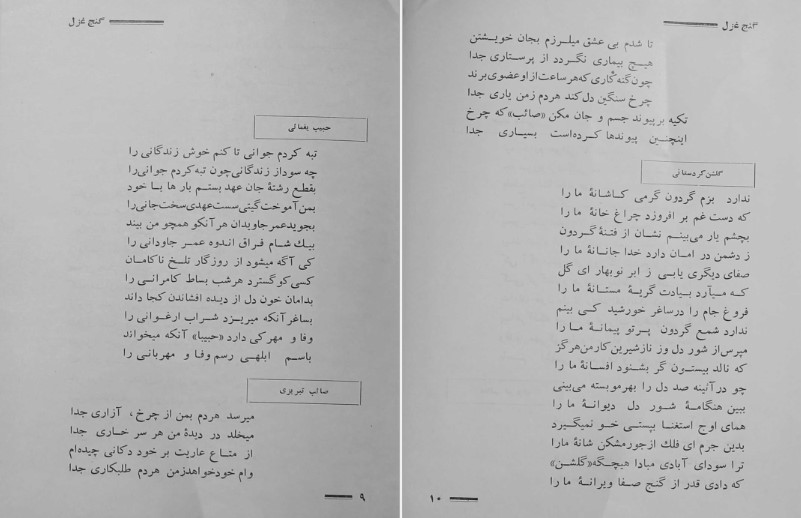 گنج غزل
حبیب یغمائی
تبه کردم جوانی تا کنم خوش زندگانی را
چه سود از زندگانی چون تبه کردم جوانی را
بقطع رشتهٔ جان عهد بستم بار ها با خود
بمن آموخت گیتی سست عهدی سخت جانی را
بجوید عمر جاویدان هر آنکو همچو من بیند
بیك شام فراق اندوه عمر جاودانی را
کی آگه میشود از روزگار تلخ ناکامان
کسی کو گسترد هرشب بساط کامرانی را
بدامان خون دل از دیده افشاندن کجا داند
بساغر آنکه میریزد شراب ارغوانی را
وفا و مهر کی دارد «حبیبا» آنکه میخواند
باسم ابلهی رسم وفا و مهربانی را
صائب تبریزی
میرسد هردم بمن از چرخ، آزاری جدا
میخلد در دیدهٔ من هر سر خاری جدا
از متاع عاریت بر خود دکانی چیده‌ام
وام خود خواهد زمن هردم طلبکاری جدا
۹
گنج غزل
تا شدم بی عشق میلرزم بجان خویشتن
هیچ بیماری نگردد از پرستاری جدا
چون گنه‌کاری که هر ساعت از او عضوی برند
چرخ سنگین دل کند هردم زمن یاری جدا
تکیه بر پیوند جسم و جان مکن «صائب» که چرخ
اینچنین پیوندها کرده‌است بسیاری جدا
گلشن کردستانی
ندارد بزم گردون گرمی کاشانهٔ ما را
که دست غم بر افروزد چراغ خانهٔ ما را
بچشم یار می‌بینم نشان از فتنهٔ گردون
ز دشمن در امان دارد خدا جانانهٔ ما را
صفای دیگری یابی ز ابر نوبهار ای گل
که میآرد بیادت گریهٔ مستانهٔ ما را
فروغ جام را درساغر خورشید کی بینم
ندارد شمع گردون پرتو پیمانهٔ ما را
مپرس از شور دل وز نازشیرین کار من هرگز
که نالد بیستون گر بشنود افسانهٔ ما را
چو درآئینه صد دل را بهرمو بسته می‌بینی
ببین هنگامهٔ شور دل دیوانهٔ ما را
همای اوج استغنا بپستی خو نمیگیرد
بدین جرم ای فلك ازجور مشکن شانهٔ مارا
ترا سودای آبادی مبادا هیچگه «گلشن»
که دادی قدر از گنج صفا ویرانهٔ ما را
۱۰